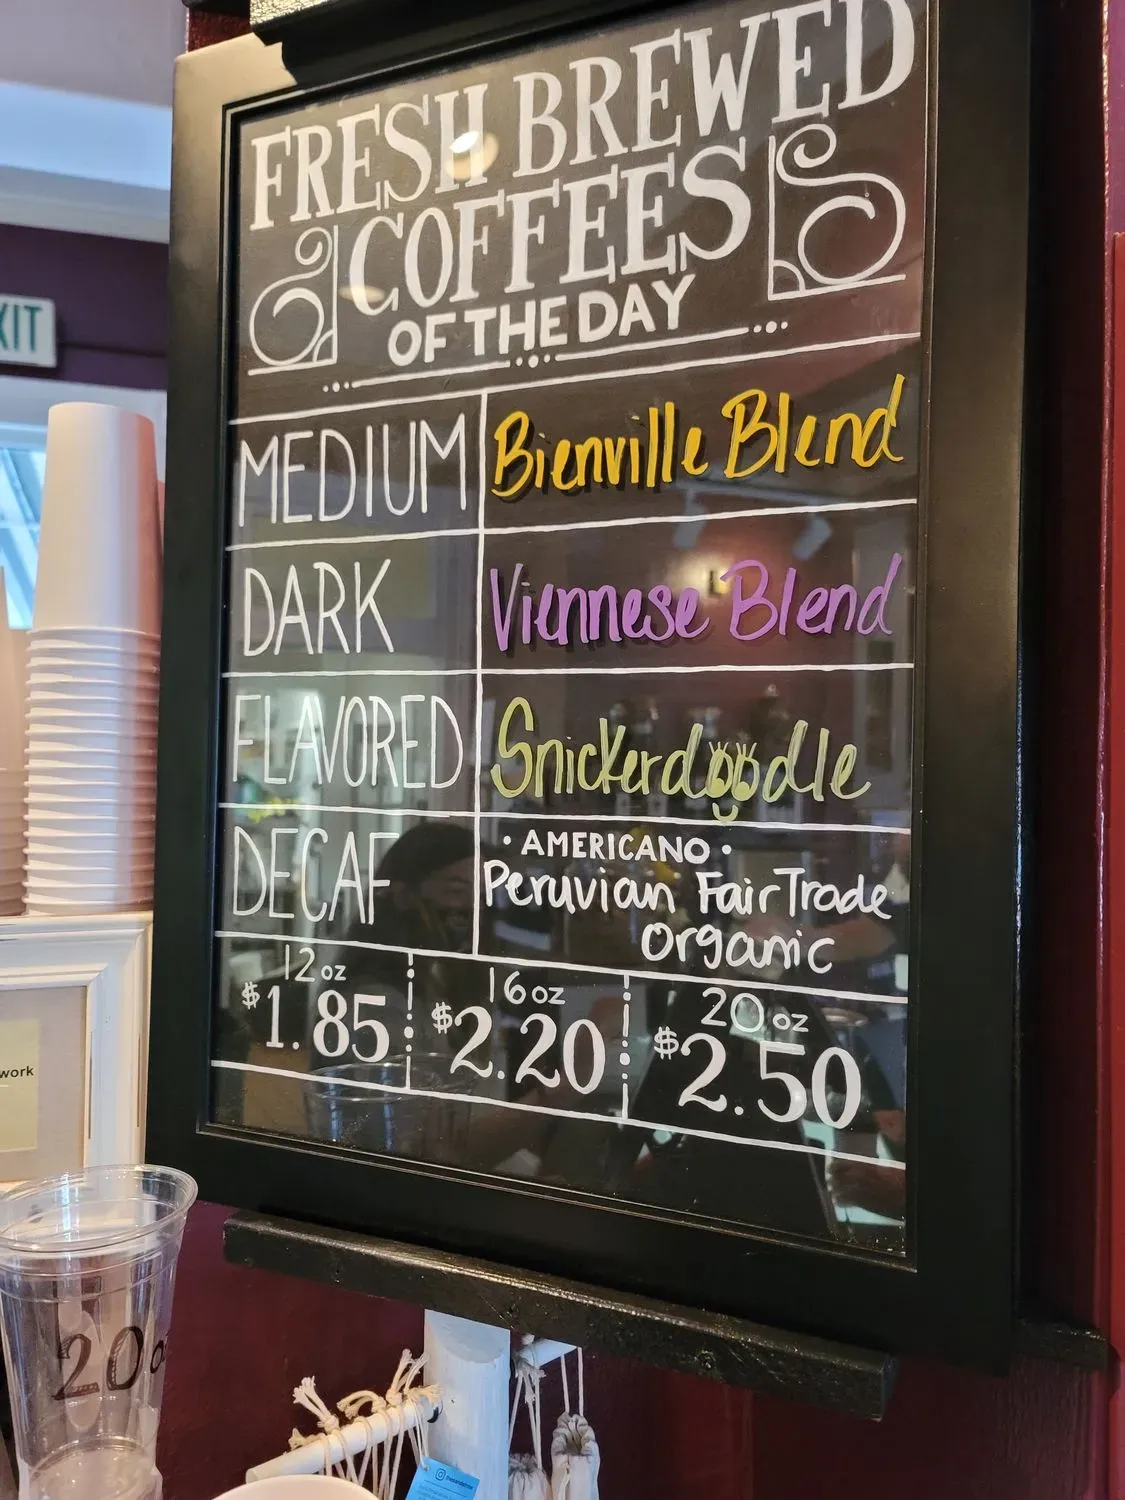 FRESH BREWED
COFFEES
OF THE DAY
MEDIUM
Bienville Blend
DARK
Viennese Blend
FLAVORED
Snickerdoodle
DECAF
• AMERICANO •
Peruvian Fair Trade
organic
12 oz
$1.85
16 oz
$2.20
20 oz
$2.50
XIT
work
20